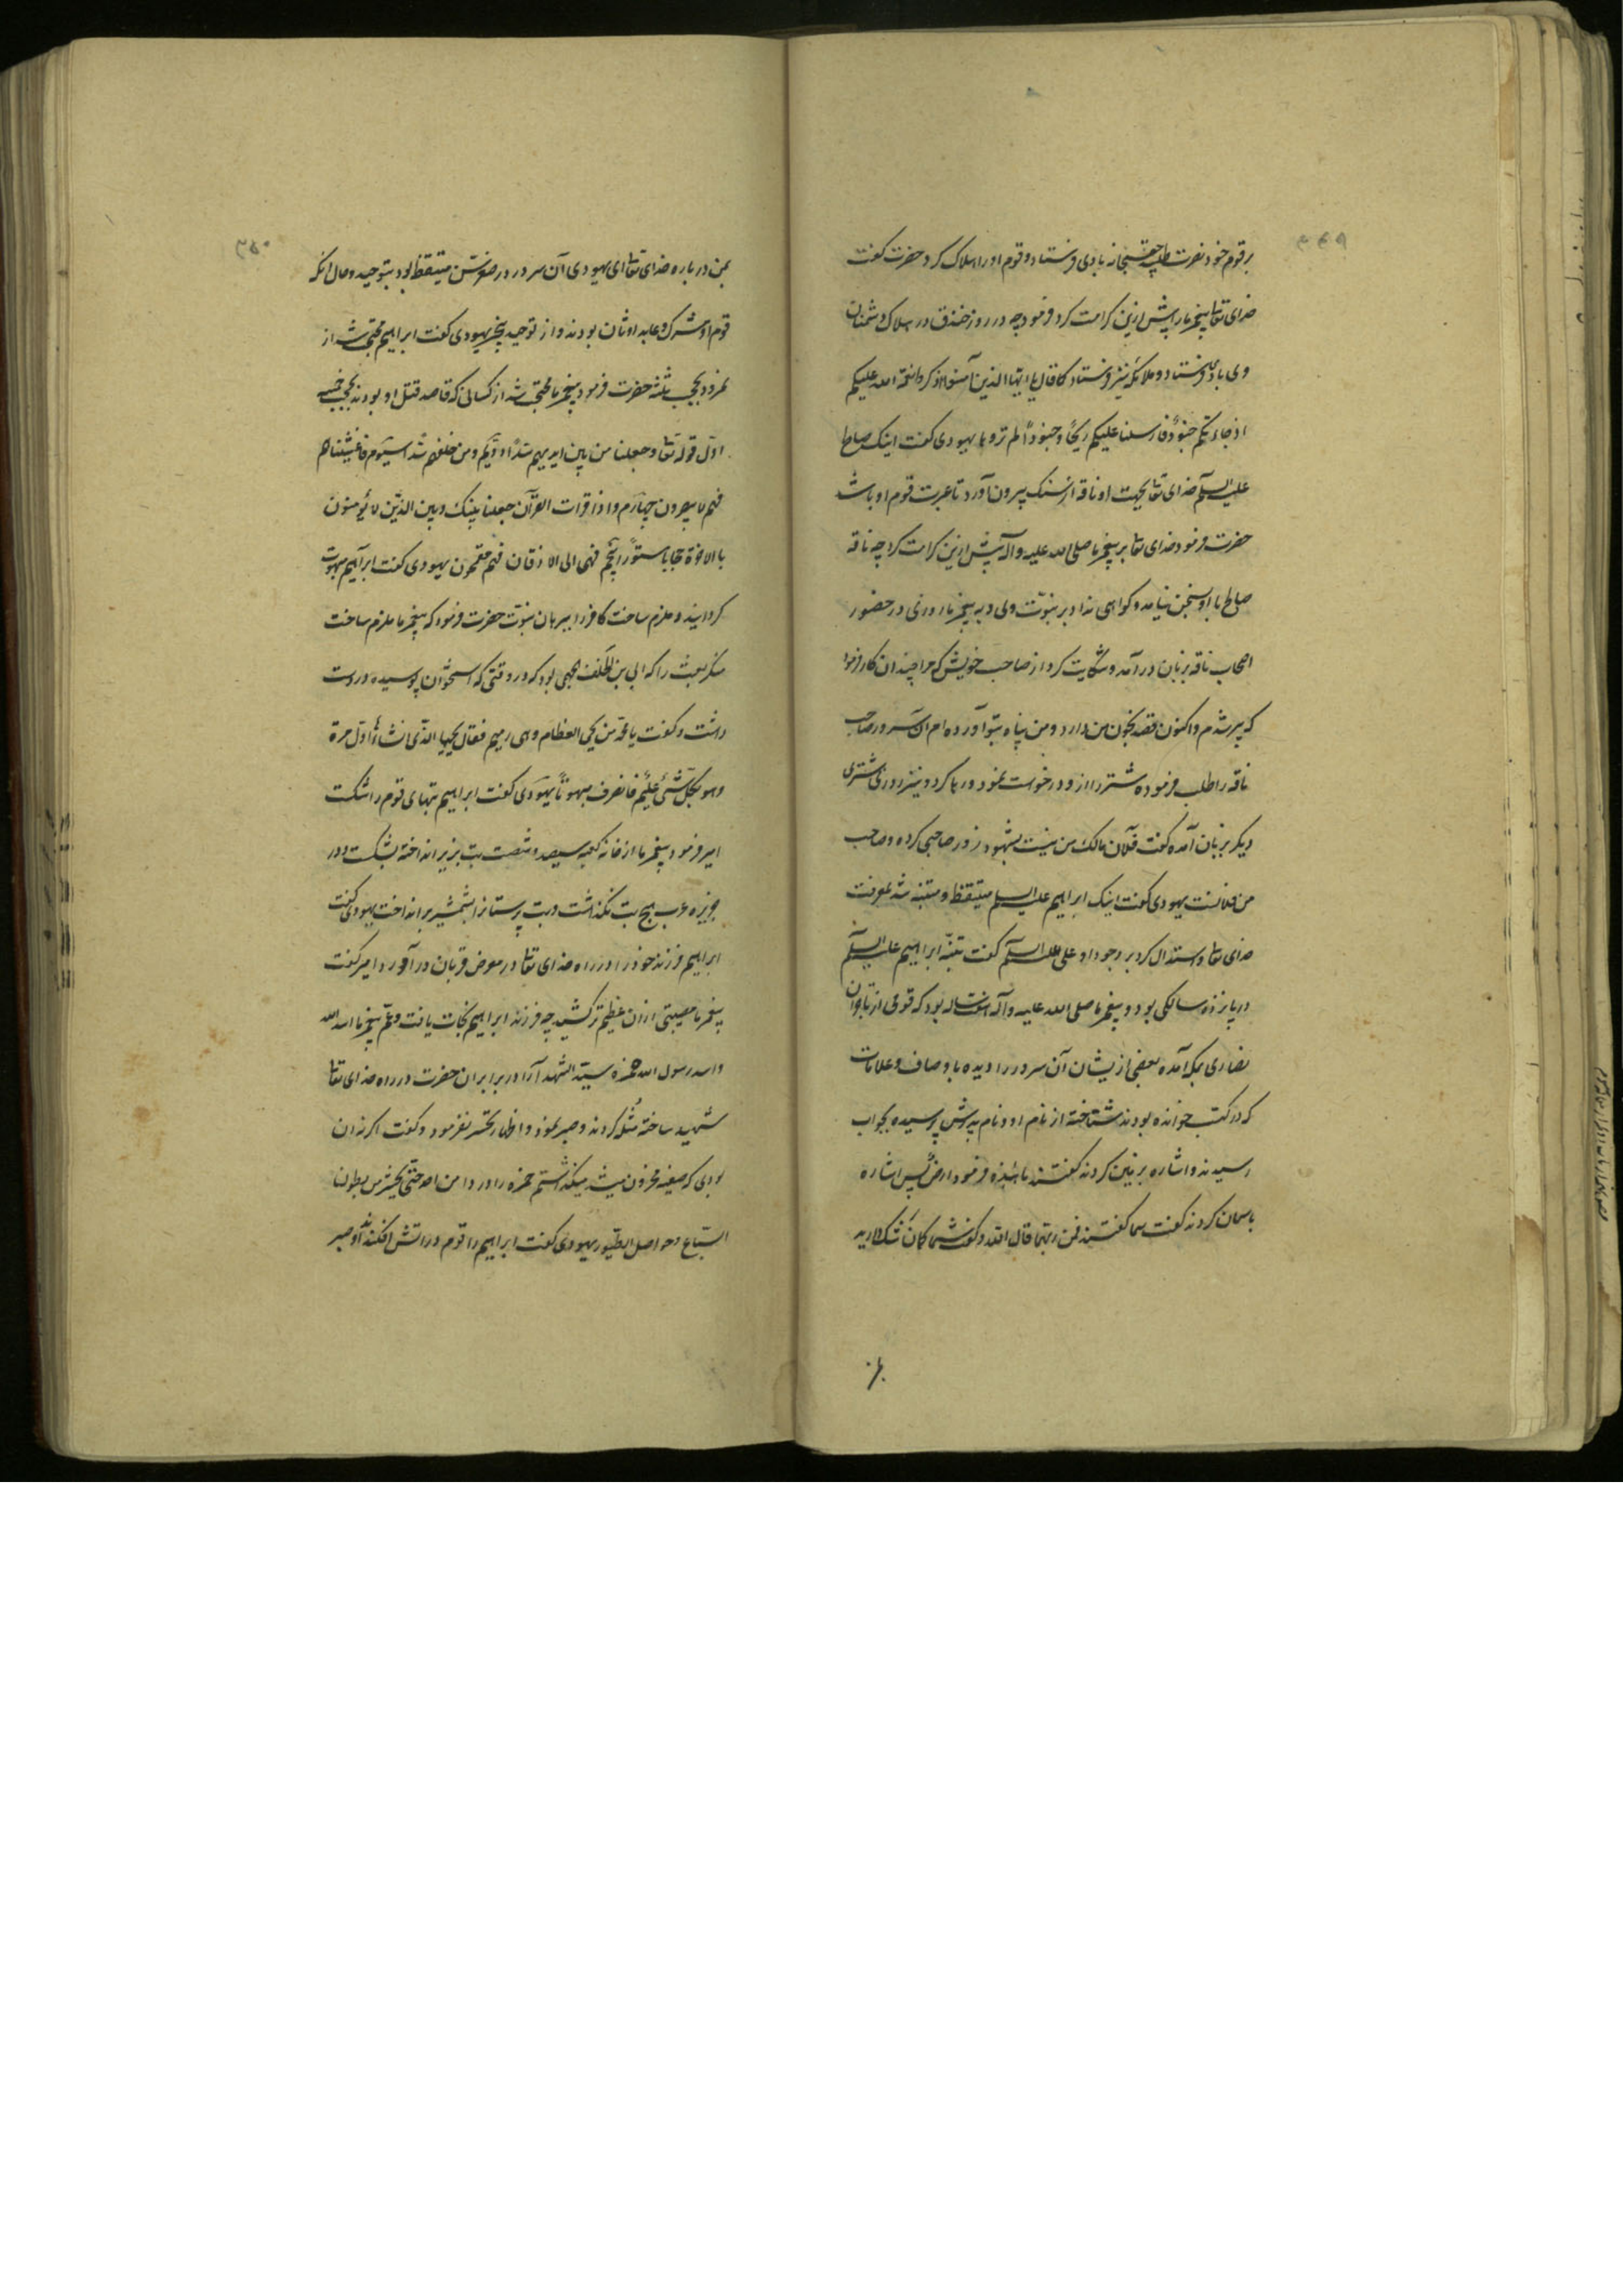 ۳۶۹
بر قوم خود نصرت طلبید حق سبحانه بادی فرستاد و قوم او را هلاک کرد حضرت گفت
خدای تعا پیغمبر ما را پیش ازین کرامت کرد و فرمود چه در روز خندق در هلاک دشمنان
وی بادی فرستاد و ملائکه نیز فرستاد کما قال یا ایها الذین آمنوا اذکروا نعمة الله علیکم
اذ جاءتکم جنودٌ فارسلنا علیکم ریحًا و جنودًا لم تروها یهودی گفت اینک صالح
علیه السلم خدای تعا بجهت او ناقه از سنک بیرون آورد تا عبرت قوم او باشد
حضرت فرمود خدای تعا بر پیغمبر ما صلی الله علیه و آله بیش ازین کرامت کرد چه ناقه
صالح با او بسخن نیامد و کواهی نداد بر نبوّت وی و به پیغمبر ما روزی در حضور
اصحاب ناقه بزبان درآمد و شکایت کرد از صاحب خویش که مرا چندان کار فرمود
که پیر شدم و اکنون قصد بخون من دارد و من پناه بتو آورده ام آن سرور صاحب
ناقه را طلب فرموده شتر را از و درخواست نمود و رها کرد و نیز روزی شتری
دیکر بزبان آمده گفت فلان مالک من نیست بشهود زور صاحبی کرده و صاحب
من فلانست یهودی گفت اینک ابراهیم علیه السلم متیقظ و متنبه شد بمعرفت
خدای تعا و استدلال کرد بر وجود او علی علیه السلم گفت تنبّه ابراهیم علیه السلم
در پانزده سالکی بود و پیغمبر ما صلی الله علیه و آله هفت ساله بود که قومی از تاجران
نصاری بمکه آمده بعضی ازیشان آن سرور را دیده باوصاف و علامات
که در کتب خوانده بودند شناخته از نام او و نام پدرش پرسیده بجواب
رسیدند و اشاره بزمین کردند گفتند ما هذه فرمود ارض پس اشاره
باسمان کردند گفت سما گفتند فمن ربهما قال الله و گفت شما کمان شک دارید
۳۷۰
بمن درباره خدای تعا ای یهودی آن سرور در صغر سن متیقظ بود بتوحید و حال انکه
قوم او مشرک و عابد اوثان بودند و از توحید بیخبر یهودی گفت ابراهیم محتجب شد از
نمرود بحجب ثلثه حضرت فرمود پیغمبر ما محتجب شد از کسانی که قاصد قتل او بودند بحجب خمسه
اول قوله تعا و جعلنا من بین ایدیهم سدًّا دویّم و من خلفهم سدًّا سیّوم فاغشیناهم
فهم لا یبصرون چهارم و اذا قرات القرآن جعلنا بینک و بین الذین لا یؤمنون
بالاخرة حجابا مستورا پنجم فهی الی الاذقان فهم مقمحون یهودی گفت ابراهیم مبهوت
کردانید و ملزم ساخت کافر را ببرهان نبوّت حضرت فرمود که پیغمبر ما ملزم ساخت
منکر بعث را که ابی بن الخلف جمحی بود که در وقتی که استخوان پوسیده در دست
داشت و گفت یا محمّد من یحیی العظام وهی رمیم فقال یحییها الذی انشاها اول مرة
وهو بکلّ شئ علیم فانصرف مبهوتًا یهودی گفت ابراهیم بتهای قوم را شکست
امیر فرمود پیغمبر ما از خانه کعبه سیصد و شصت بت بزیر انداخته بشکست و در
جزیره عرب هیچ بت نکذاشت و بت پرستانرا بشمشیر برانداخت یهودی گفت
ابراهیم فرزند خود را در راه خدای تعا در معرض قربان درآورد امیر گفت
پیغمبر ما مصیبتی ازان عظیم تر کشید چه فرزند ابراهیم نجات یافت و عمّ پیغمبر ما اسد الله
و اسد رسول الله حمزه سید الشهدا را در برابر ان حضرت در راه خدای تعا
شهید ساخته مُثله کردند و صبر نمود و اظهار تحسّر نفرمود و گفت اکر نه ان
بودی که صفیه محزون میشد میکذاشتم حمزه را در دامن احد حتی یحشر من بطون
السّباع و حواصل الطیور یهودی گفت ابراهیم را قوم در اتش افکندند او صبر